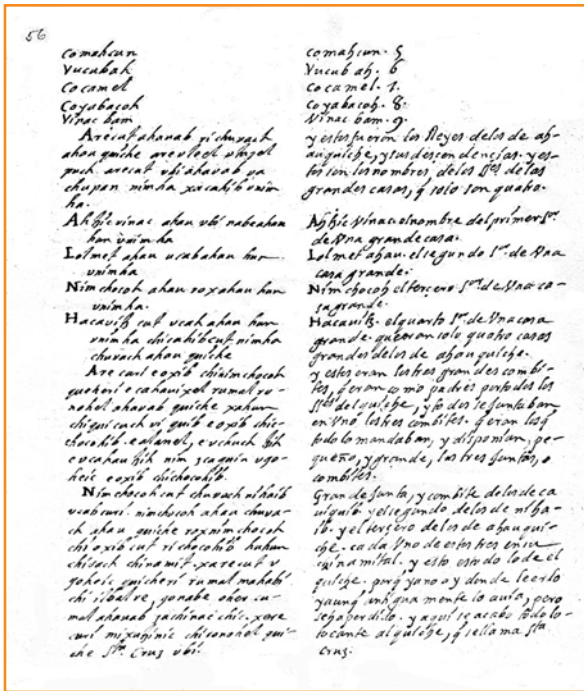 56
Comahcun
Vucubah
Cocamel
Coyabacoh
Vinac bam
Arecut ahauab ri chuvach
ahau quiche are vleel vmpel
puch arecut vbi ahauab va
chupan nimha xacahib vnim
ha.
Ahtzic vinac ahau vbi nabe ahau
hun vnimha
Lolmet ahau ucab ahau hun
vnimha
Nim chocoh ahau rox ahau hun
vnimha.
Hacavitz cut ucah ahau hun
vnimha chi cahib cut nimha
chuvach ahau quiche
Are cari e oxib chi nim chocoh
queheri e cahauixel rumal ro-
nohel ahauab quiche xa hun
chi qui cuch vi quib e oxib chic-
chocohib. e alanel, e vchuch tzih
e vcahau tzih nim zcaquin vgo-
heic e oxib chi chocohib.
Nim chocoh cut chuvach nihaib
ucab curi. nim chocoh ahau chuva-
ch ahau quiche rox nim chocoh
chi oxib cut ri chocohib huhun
chivach chinamit. xare cut v
goheic quicheri rumal mahabi
chi ilbal re, gonabe oher cu-
mal ahauab zachinac chic. xere
curi mi xutzinic chi conohel qui-
che Sta. Cruz vbi.
Comahcun. 5
Vucub ah. 6
Cocamel. 7.
Coyabacoh. 8.
Vinac bam. 9.
y estos fueron los Reyes delos de ah-
au quiche, y sus descendençias. y es-
tos son los nombres, delos sres. delas
grandes casas, q̃ solo son quatro.
Ahtzic Vinac el nombre del primer sor.
de Vna grande casa.
Lolmet ahau. el segundo sor. de Vna
casa grande.
Nim chocoh el terçero sor. de Vna ca-
sa grande.
Hacavitz. el quarto sor. de Vna casa
grande. que eran solo quatro casas
grandes delos de ahau quiche.
y estos eran los tres grandes combi-
tes, q̃ eran como padres por todos los
sres. del quiche, y todos se juntaban
en Vno los tres combites. q̃ eran los q̃
todo lo mandaban, y disponian, pe-
queño, y grande, las tres juntas, o
combites.
Grande junta, y combite delos de ca
uiquib y el segundo delos de niha-
ib. y el terçero delos de ahau qui-
che. cada Vno de estos tres en su
chinamital. y esto es todo lo de el
quiche. porq̃ ya no ay donde leerlo
y aunq̃ antiguamente lo auia, pero
se ha perdido. y aqui se acabo todo lo
tocante al quiche, q̃ se llama Sta.
Cruz.